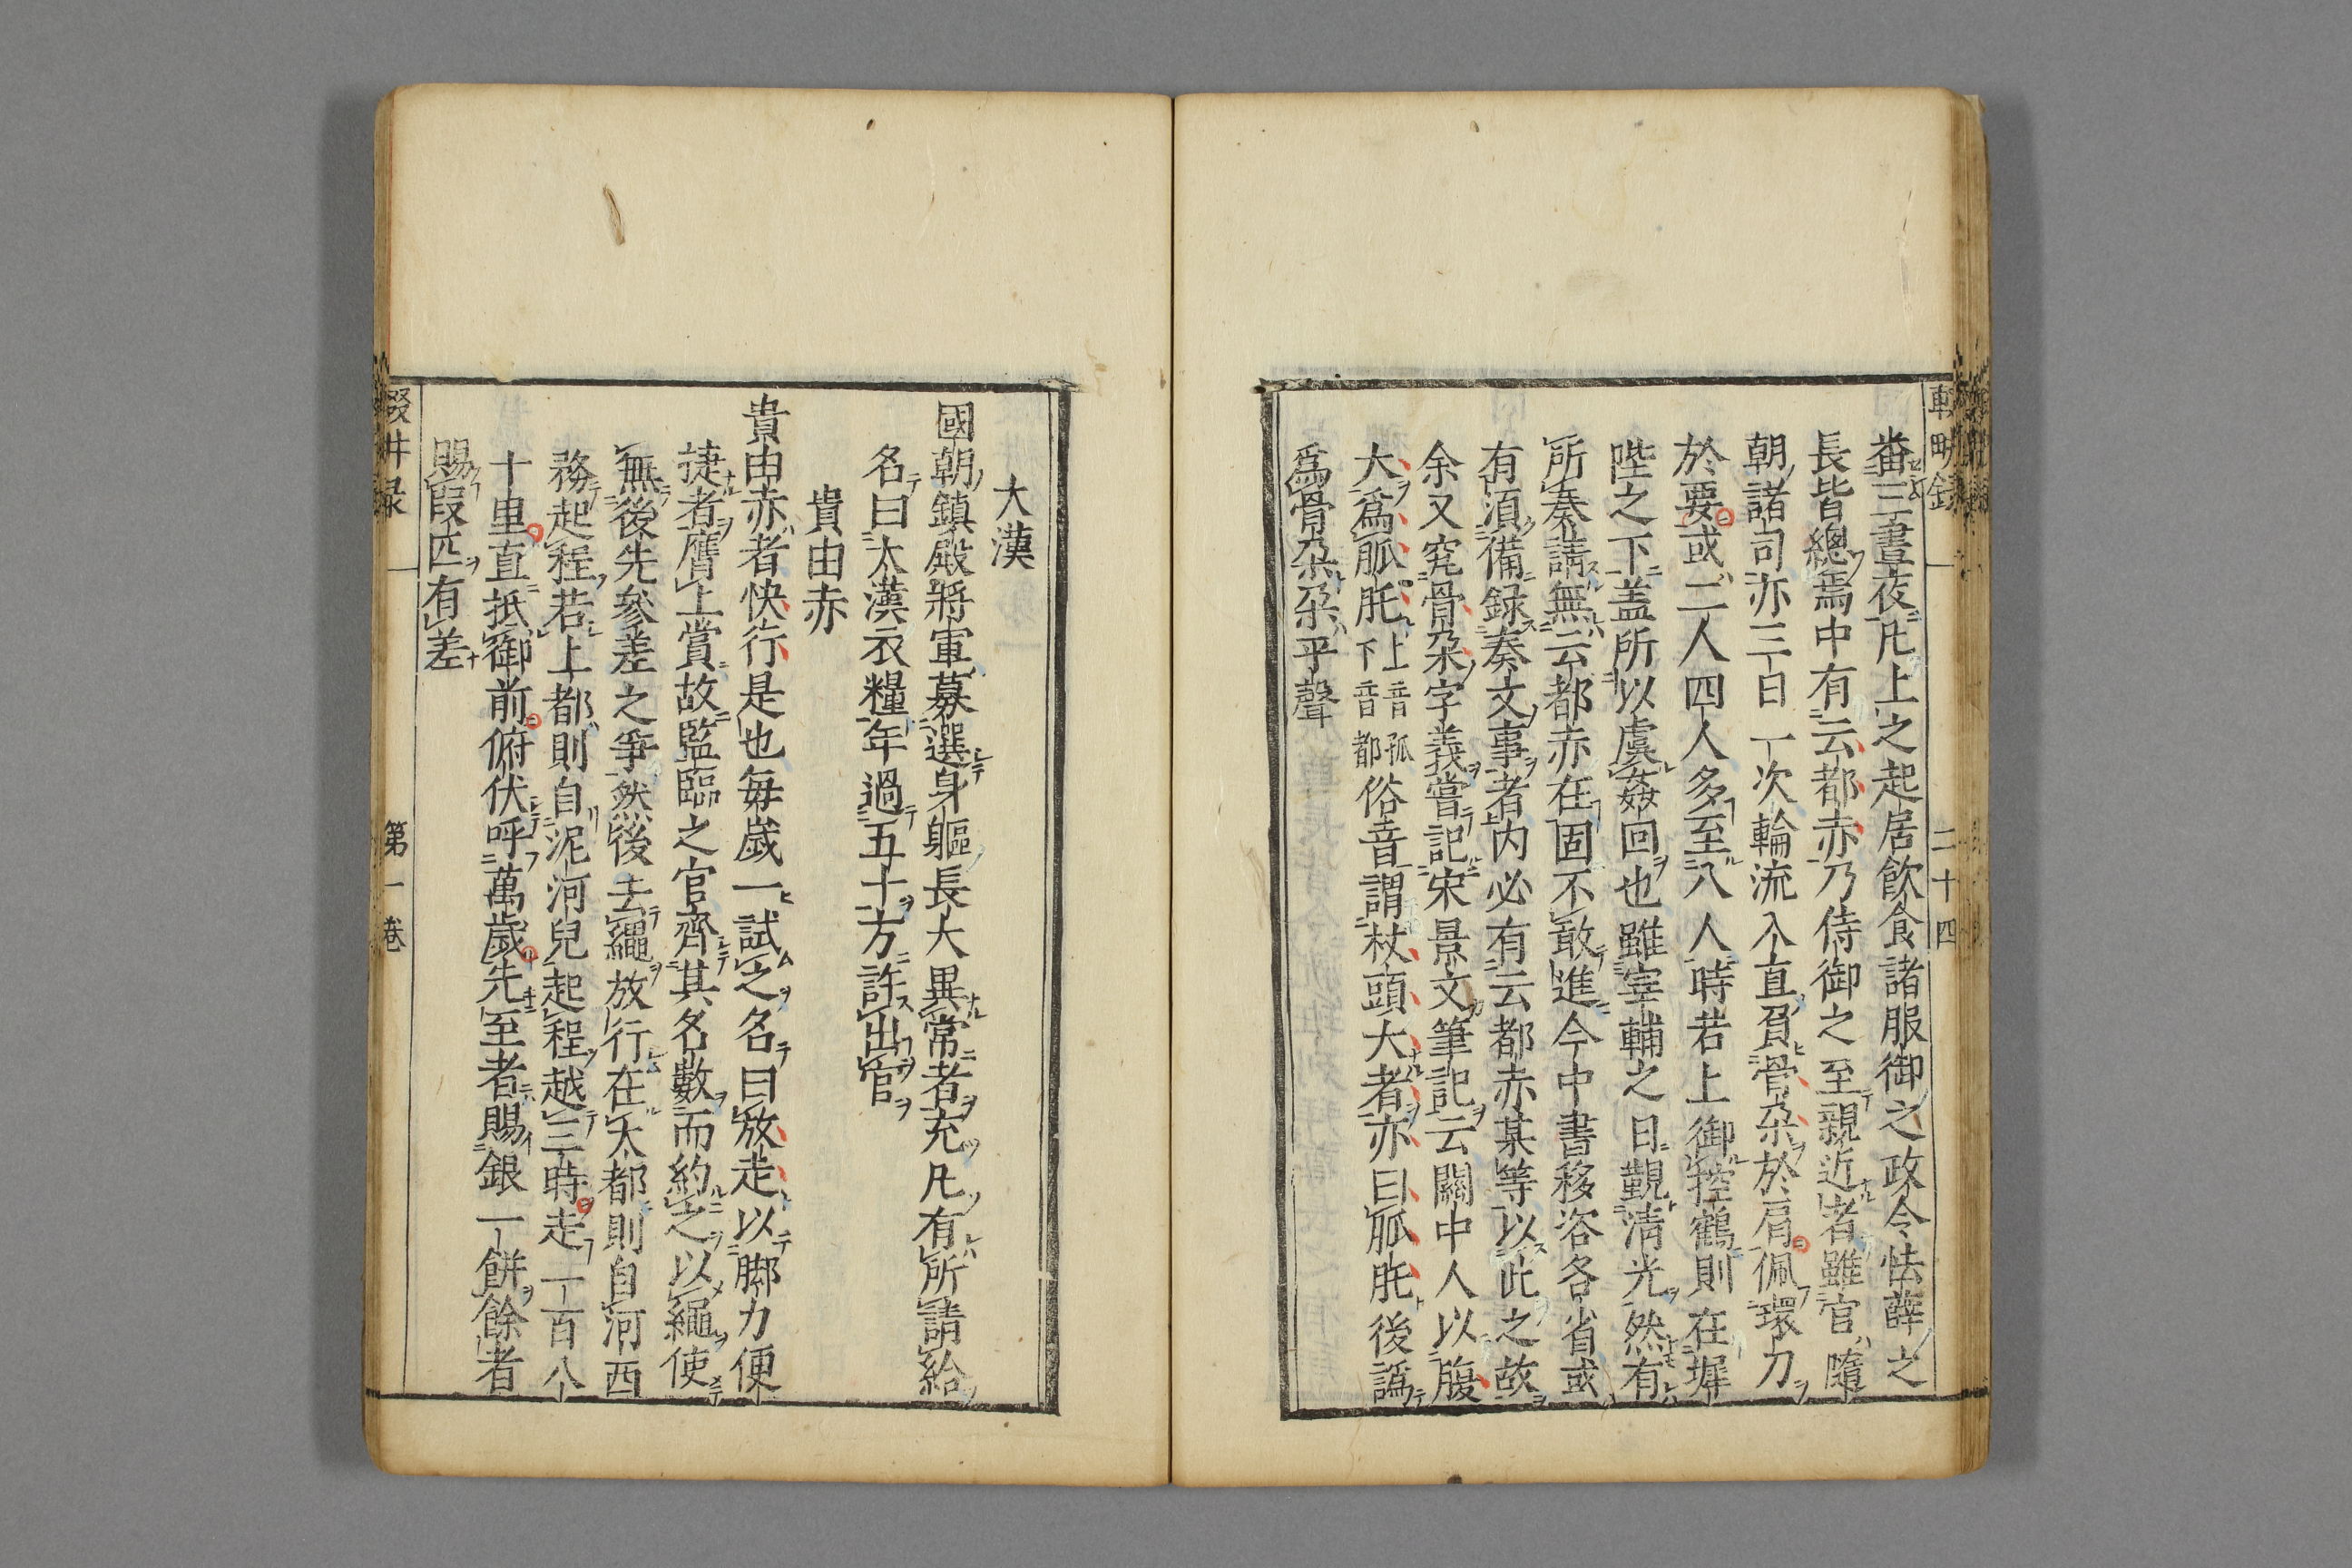 番三晝夜凡上之起居飲食諸服御之政令怯薛之
長皆總焉中有云都赤乃侍御之至親近者雖官隨
朝諸司亦三日一次輪流入直負骨朶於肩佩環刀
於要或二人四人多至八人時若上御控鶴則在墀
陛之下盖所以虞姦回也雖宰輔之日覲清光然有
所奏請無云都赤在固不敢進今中書移咨各省或
有須備録奏文事者内必有云都赤某等以此之故
余又究骨朶字義嘗記宋景文筆記云關中人以腹
大爲胍肫上音孤下音都俗音謂杖頭大者亦曰胍肫後譌
爲骨朶朶平聲
二十四
大漢
國朝鎮殿將軍募選身軀長大異常者充凡有所請給
名曰大漢衣糧年過五十方許出官
貴由赤
貴由赤者快行是也毎歳一試之名曰放走以脚力便
捷者膺上賞故監臨之官齊其名數而約之以繩使
無後先參差之爭然後去繩放行在大都則自河西
務起程若上都則自泥河兒起程越三時走一百八
十里直抵御前俯伏呼萬歳先至者賜銀一餅餘者
賜叚匹有差
第一卷